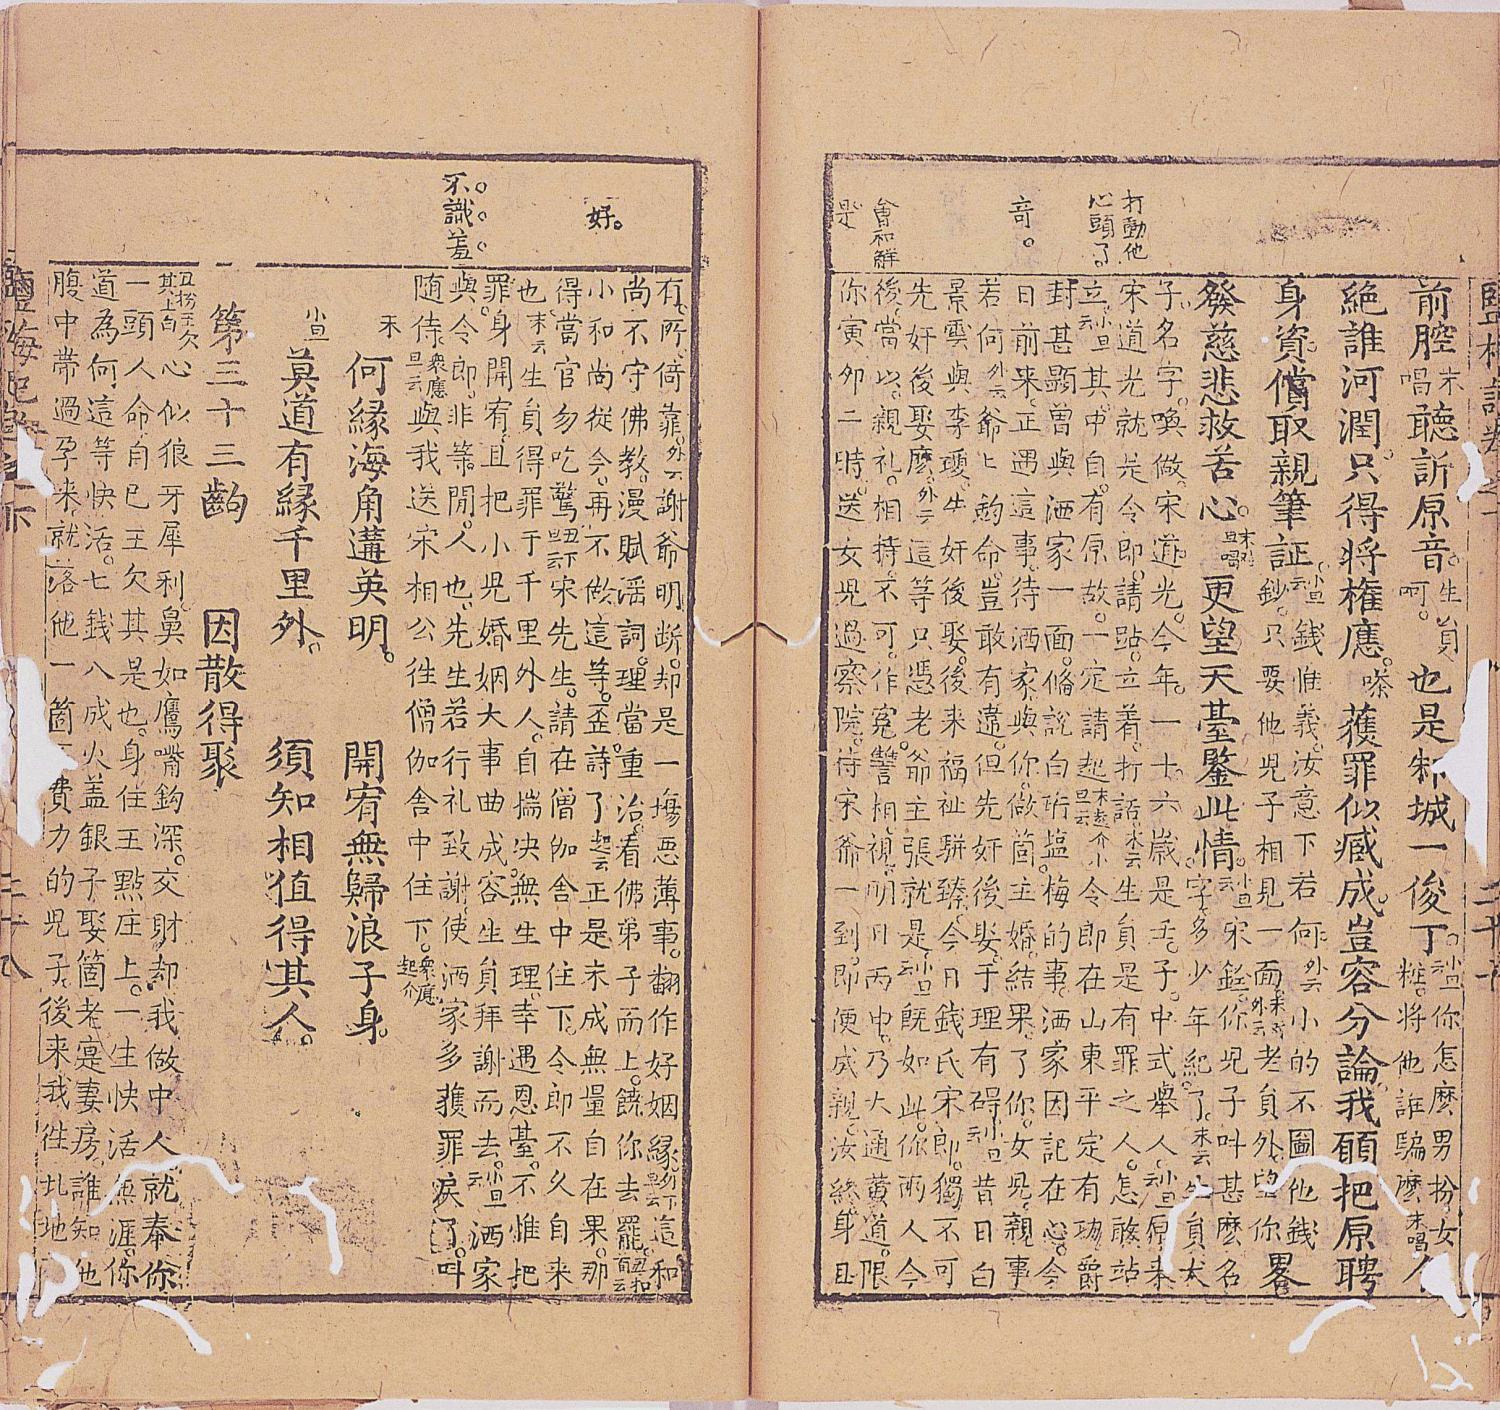 打動他
心頭了。
奇。
會和鮮
是
前腔末唱聽訴原音。生員呵。也是邾城一俊丁。小旦云你怎麼男扮女粧。將他誰騙麼末唱人
絕誰河潤。只得將權應。嗏蒦罪似臧成。豈容分論。我願把原聘
身資償取親筆証。小旦云錢惟義。汝意下若何。外云小的不圖他錢鈔。只要他兒子相見一面。外云老員外。望你畧
發慈悲救苦心。更望天臺鑒此情。小旦云宋鋌。你兒子叫甚麼名字。多少年紀了。末云生員犬
子。名字。喚做。宋道。光。今年。一十六歲。是壬。子。中式舉人。小旦云原來
宋道光就是令郎。請跕。立着。打話。末云生員是有罪之人。怎敢站
立。小旦云其中自。有原故。一定請起。末起介小旦云令郎在山東平定有功。爵
封甚顯。曾與洒家一面。備說白珩塩梅的事。洒家因記在心。今
日前來。正遇這事。待洒家與你做箇主婚。結果了你女兒。親事
若何。外云爺上的命。豈敢有違。但先奸後娶。于理有碍。小旦云昔日白
景雲與李瓊。先奸後娶。後來福祉駢臻。今日錢氏宋郎。獨不可
先奸後娶麼。外云這等。只憑老爺主張就是。小旦云既如此。你兩人今
後。當以。親礼。相持。不可。作寃。讐。相視。明日丙中。乃大通黃道。限
你寅夘二時。送女兒過察院。待宋爺一到。即便成親。汝終身且
不識羞。
好。
有。所。倚靠。外云謝爺明断。却是一塲惡薄事。翻作好姻緣。外下旦云這和
尚不守佛教。漫賦滛詞。理當重治。看佛弟子而上。饒你去罷。丑扣首云
小和尚從今。再不做這等。歪詩了。起云正是未成無量自在果。那
得當官勿吃驚。丑下旦云宋先生。請在僧伽舍中住下。令郎不久自來
也。末云生員得罪于千里外人。自揣决無生理。幸遇恩臺。不惟把
罪身開宥。且把小兒婚姻大事曲成。容生員拜謝而去。小旦云洒家
與。令郎。非等閒。人也。先生若行礼致謝。使洒家多蒦罪淚了。叫
隨侍。衆應旦云與我送宋相公往僧伽舍中住下。衆應起介
末何緣海角遘英明。開宥無歸浪子身。
小旦莫道有緣千里外。須知相值得其人。
第三十三齣　因散得聚
丑扮王欠其上白心似狼牙犀利。鼻如鷹嘴鈎深。交財却我做中人。就奉你
一頭人命。自己王欠其是也。身住王點庄上。一生快活無涯。你
道為何這等快活。七錢八成火盖銀子娶箇老寔妻房。誰知他
腹中帶過孕來。就落他一箇費力的兒子。後來我徃北地